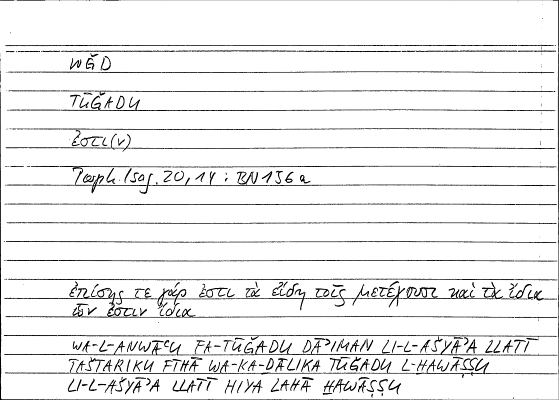 WǦD
TŪǦADU
ἐστι(ν)
Porph. Isag. 20, 14 : BN 156 a
ἐπίσης τε γάρ ἐστι τὰ εἴδη τοῖς μετέχουσι καὶ τὰ ἴδια
ὧν ἐστιν ἴδια
WA-L-ANWĀʿU FA-TŪǦADU DĀʾIMAN LI-L-AŠYĀʾA LLATĪ
TAŠTARIKU FĪHĀ WA-KA-ḎĀLIKA TŪǦADU L-ḪAWĀṢṢU
LI-L-AŠYĀʾA LLATĪ HIYA LAHĀ ḪAWĀṢṢU